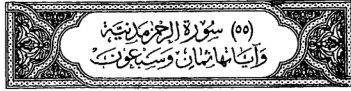 (٥٥) سُورَةُ الرَّحْمٰن مَدَنِيَّة
وَآيَاتُهَا ثَمَانٍ وَسَبْعُونَ